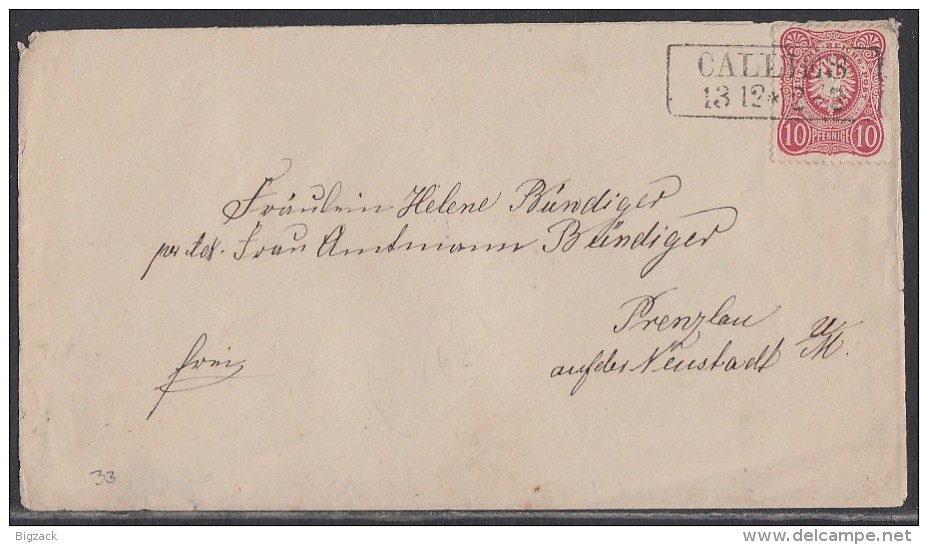 CALLIES
13 12 *
10 PFENNIGE 10
Fräulein Helene Bündiger
per Adr. Frau Amtmann Bündiger
Prenzlau
auf der Neustadt U/M.
frei
33
Bigzack
delcampe.net